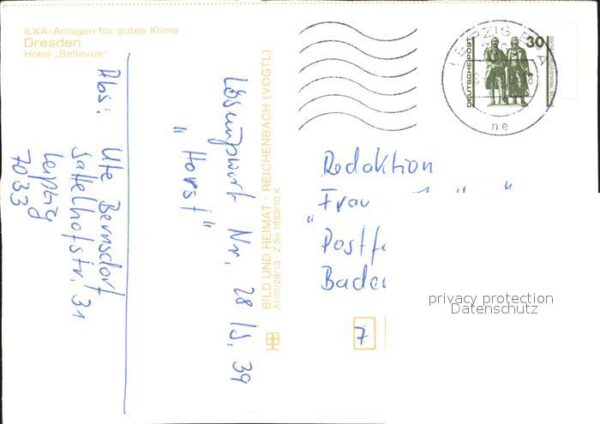 ILKA-Anlagen für gutes Klima
Dresden
Hotel „Bellevue"
Abs: Ute Bernsdorf
Sattelhofstr. 31
Leipzig
7033
Lösungswort Nr. 28 /S. 39
"Horst"
BILD UND HEIMAT · REICHENBACH (VOGTL)
LEIPZIG
ne
DEUTSCHE POST
30
Redaktion
"Frau
Postf
Bade
7
privacy protection
Datenschutz